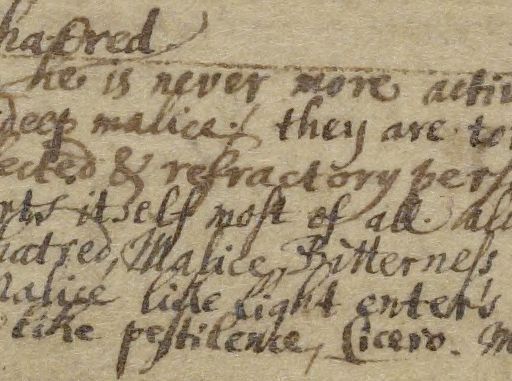 hatred
he is never more activ
deep malice. they are to
ected & refractory pers
rts itself most of all. all
hatred, Malice, Bitterness
Malice like light enter's
like pestilence, Cicero. M